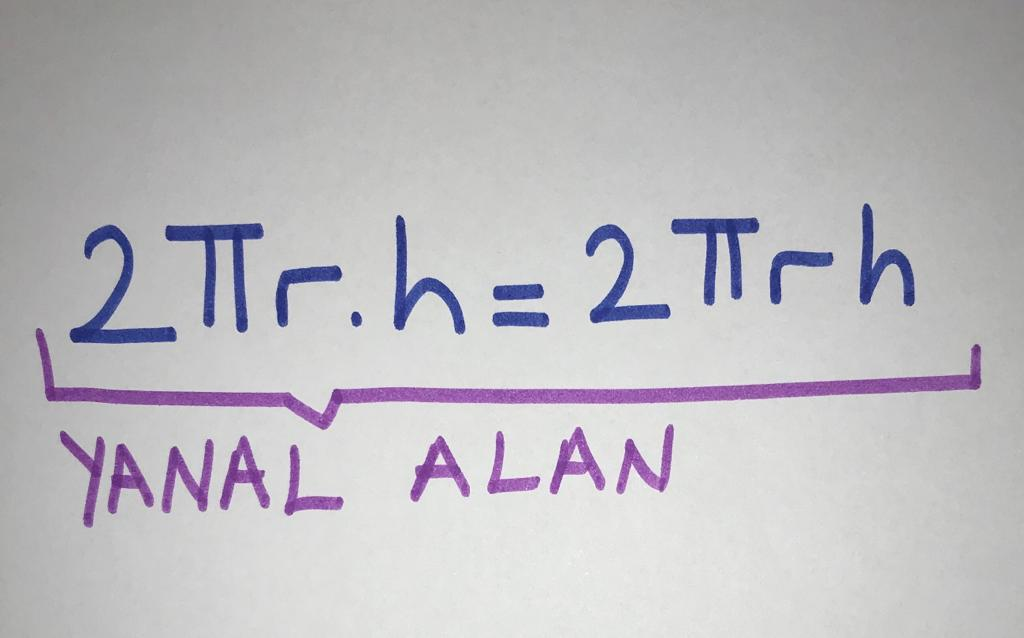 2πr.h=2πrh
YANAL ALAN